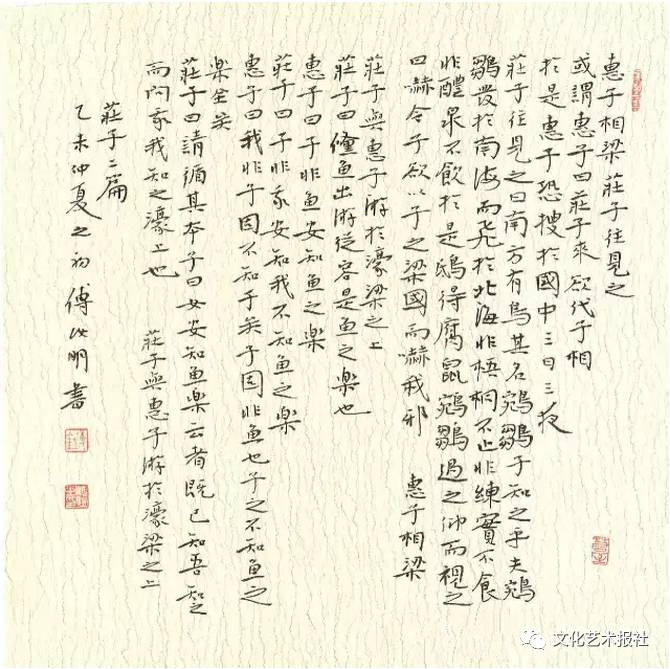 惠子相梁莊子往見之
或謂惠子曰莊子來欲代子相
於是惠子恐搜於國中三日三夜
莊子往見之曰南方有鳥其名鵷鶵子知之乎夫鵷
鶵發於南海而飛於北海非梧桐不止非練實不食
非醴泉不飲於是鴟得腐鼠鵷鶵過之仰而視之
曰嚇今子欲以子之梁國而嚇我邪 惠子相梁
莊子與惠子游於濠梁之上
莊子曰鯈鱼出游從容是鱼之樂也
惠子曰子非鱼安知鱼之樂
莊子曰子非我安知我不知鱼之樂
惠子曰我非子固不知子矣子固非鱼也子之不知鱼之
樂全矣
莊子曰請循其本子曰女安知鱼樂云者既已知吾知之
而问我我知之濠上也 莊子與惠子游於濠梁之上
莊子二篇
乙未仲夏之初傅 明書
文化艺术报社